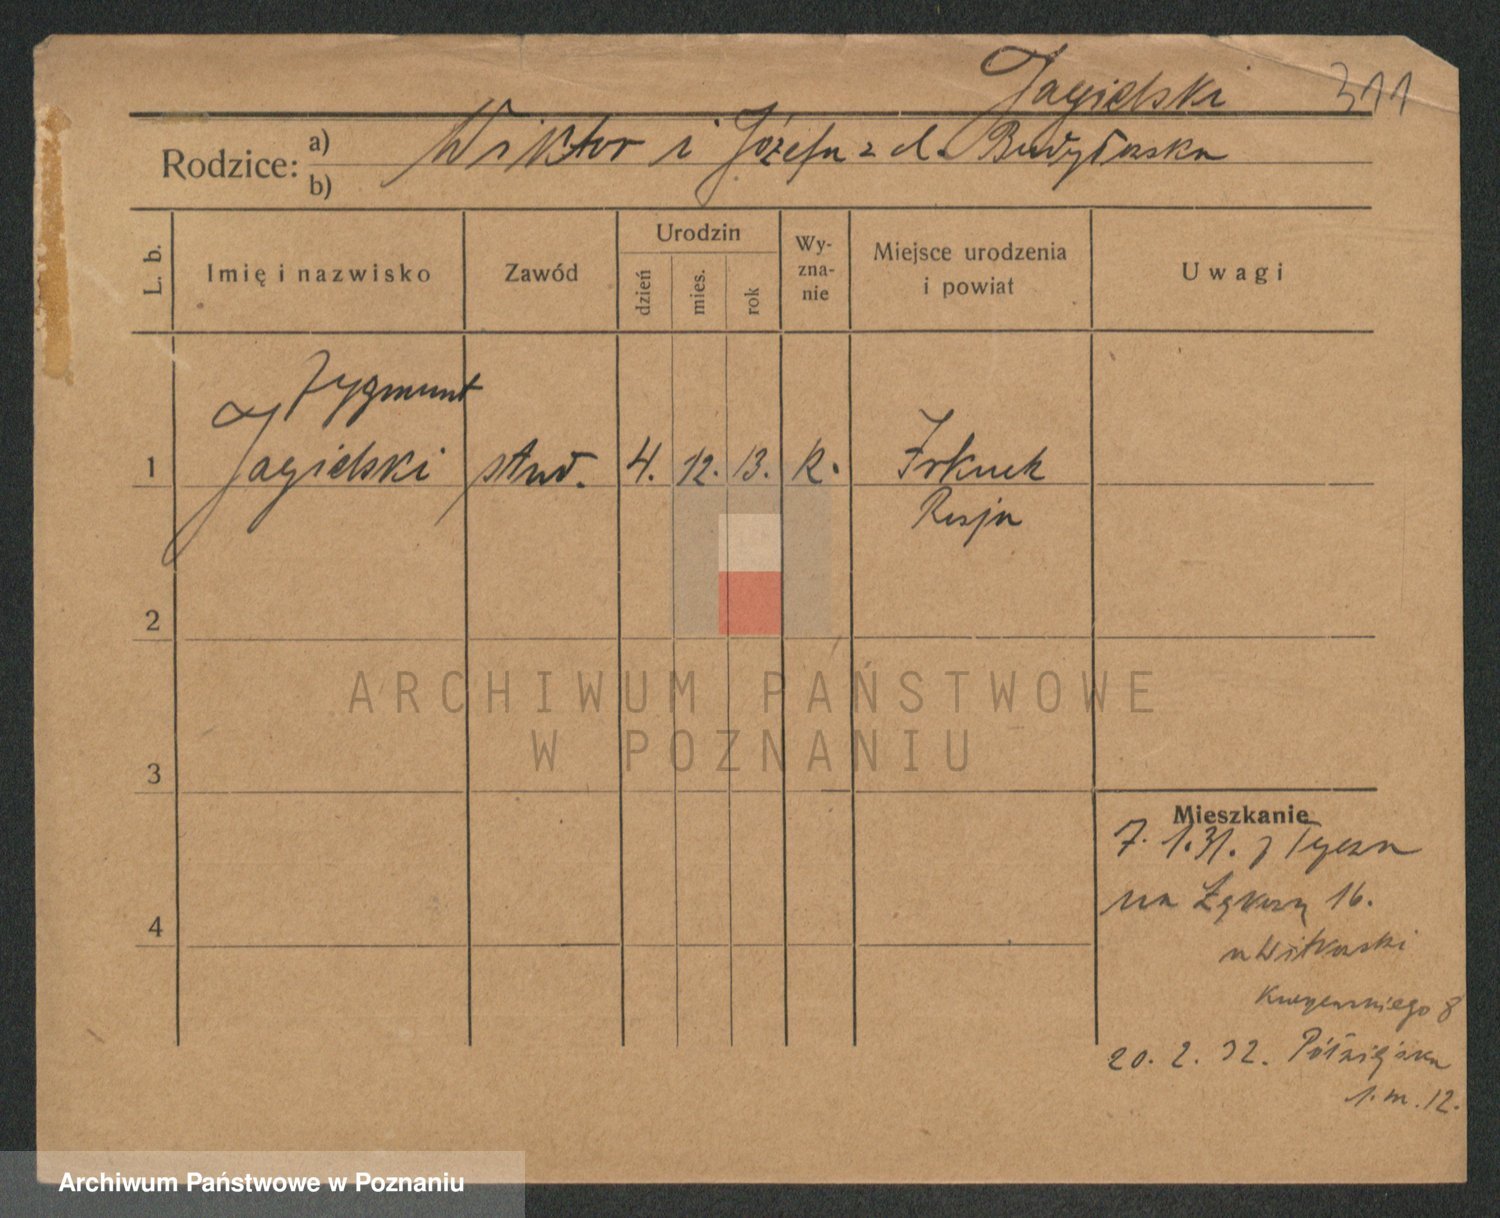 Jagielski 311
Rodzice: a) b) Wiktor i Józefa z d.
L. b.
Imię i nazwisko
Zawód
Urodzin
dzień
mies.
rok
Wy-
zna-
nie
Miejsce urodzenia
i powiat
Uwagi
Zygmunt
1 Jagielski stud. 4. 12. 13. k. Irkuck
Rosja
2
3
4
Mieszkanie
7. 1. 31. z
na 16.
u Witkowski
8
20. 2. 32. Półwiejska
1. m. 12.
ARCHIWUM PAŃSTWOWE
W POZNANIU
Archiwum Państwowe w Poznaniu